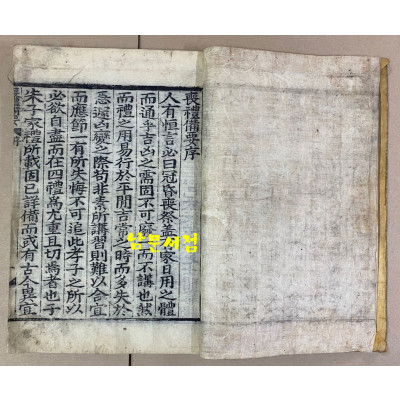 喪禮備要序
人有恒言必曰冠昏喪祭盖有家日用之體
而通乎吉凶之需固不可廢一而不講也然
而禮之用易行於平閒吉常之時而多失於
急遽凶變之際苟非素所講習則難以合宜
而應節一有所失悔不可追此孝子之所以
必欲自盡而在四禮爲尤重且切焉者也子
朱子家禮所載固已詳備而或有古今異宜
남문서점